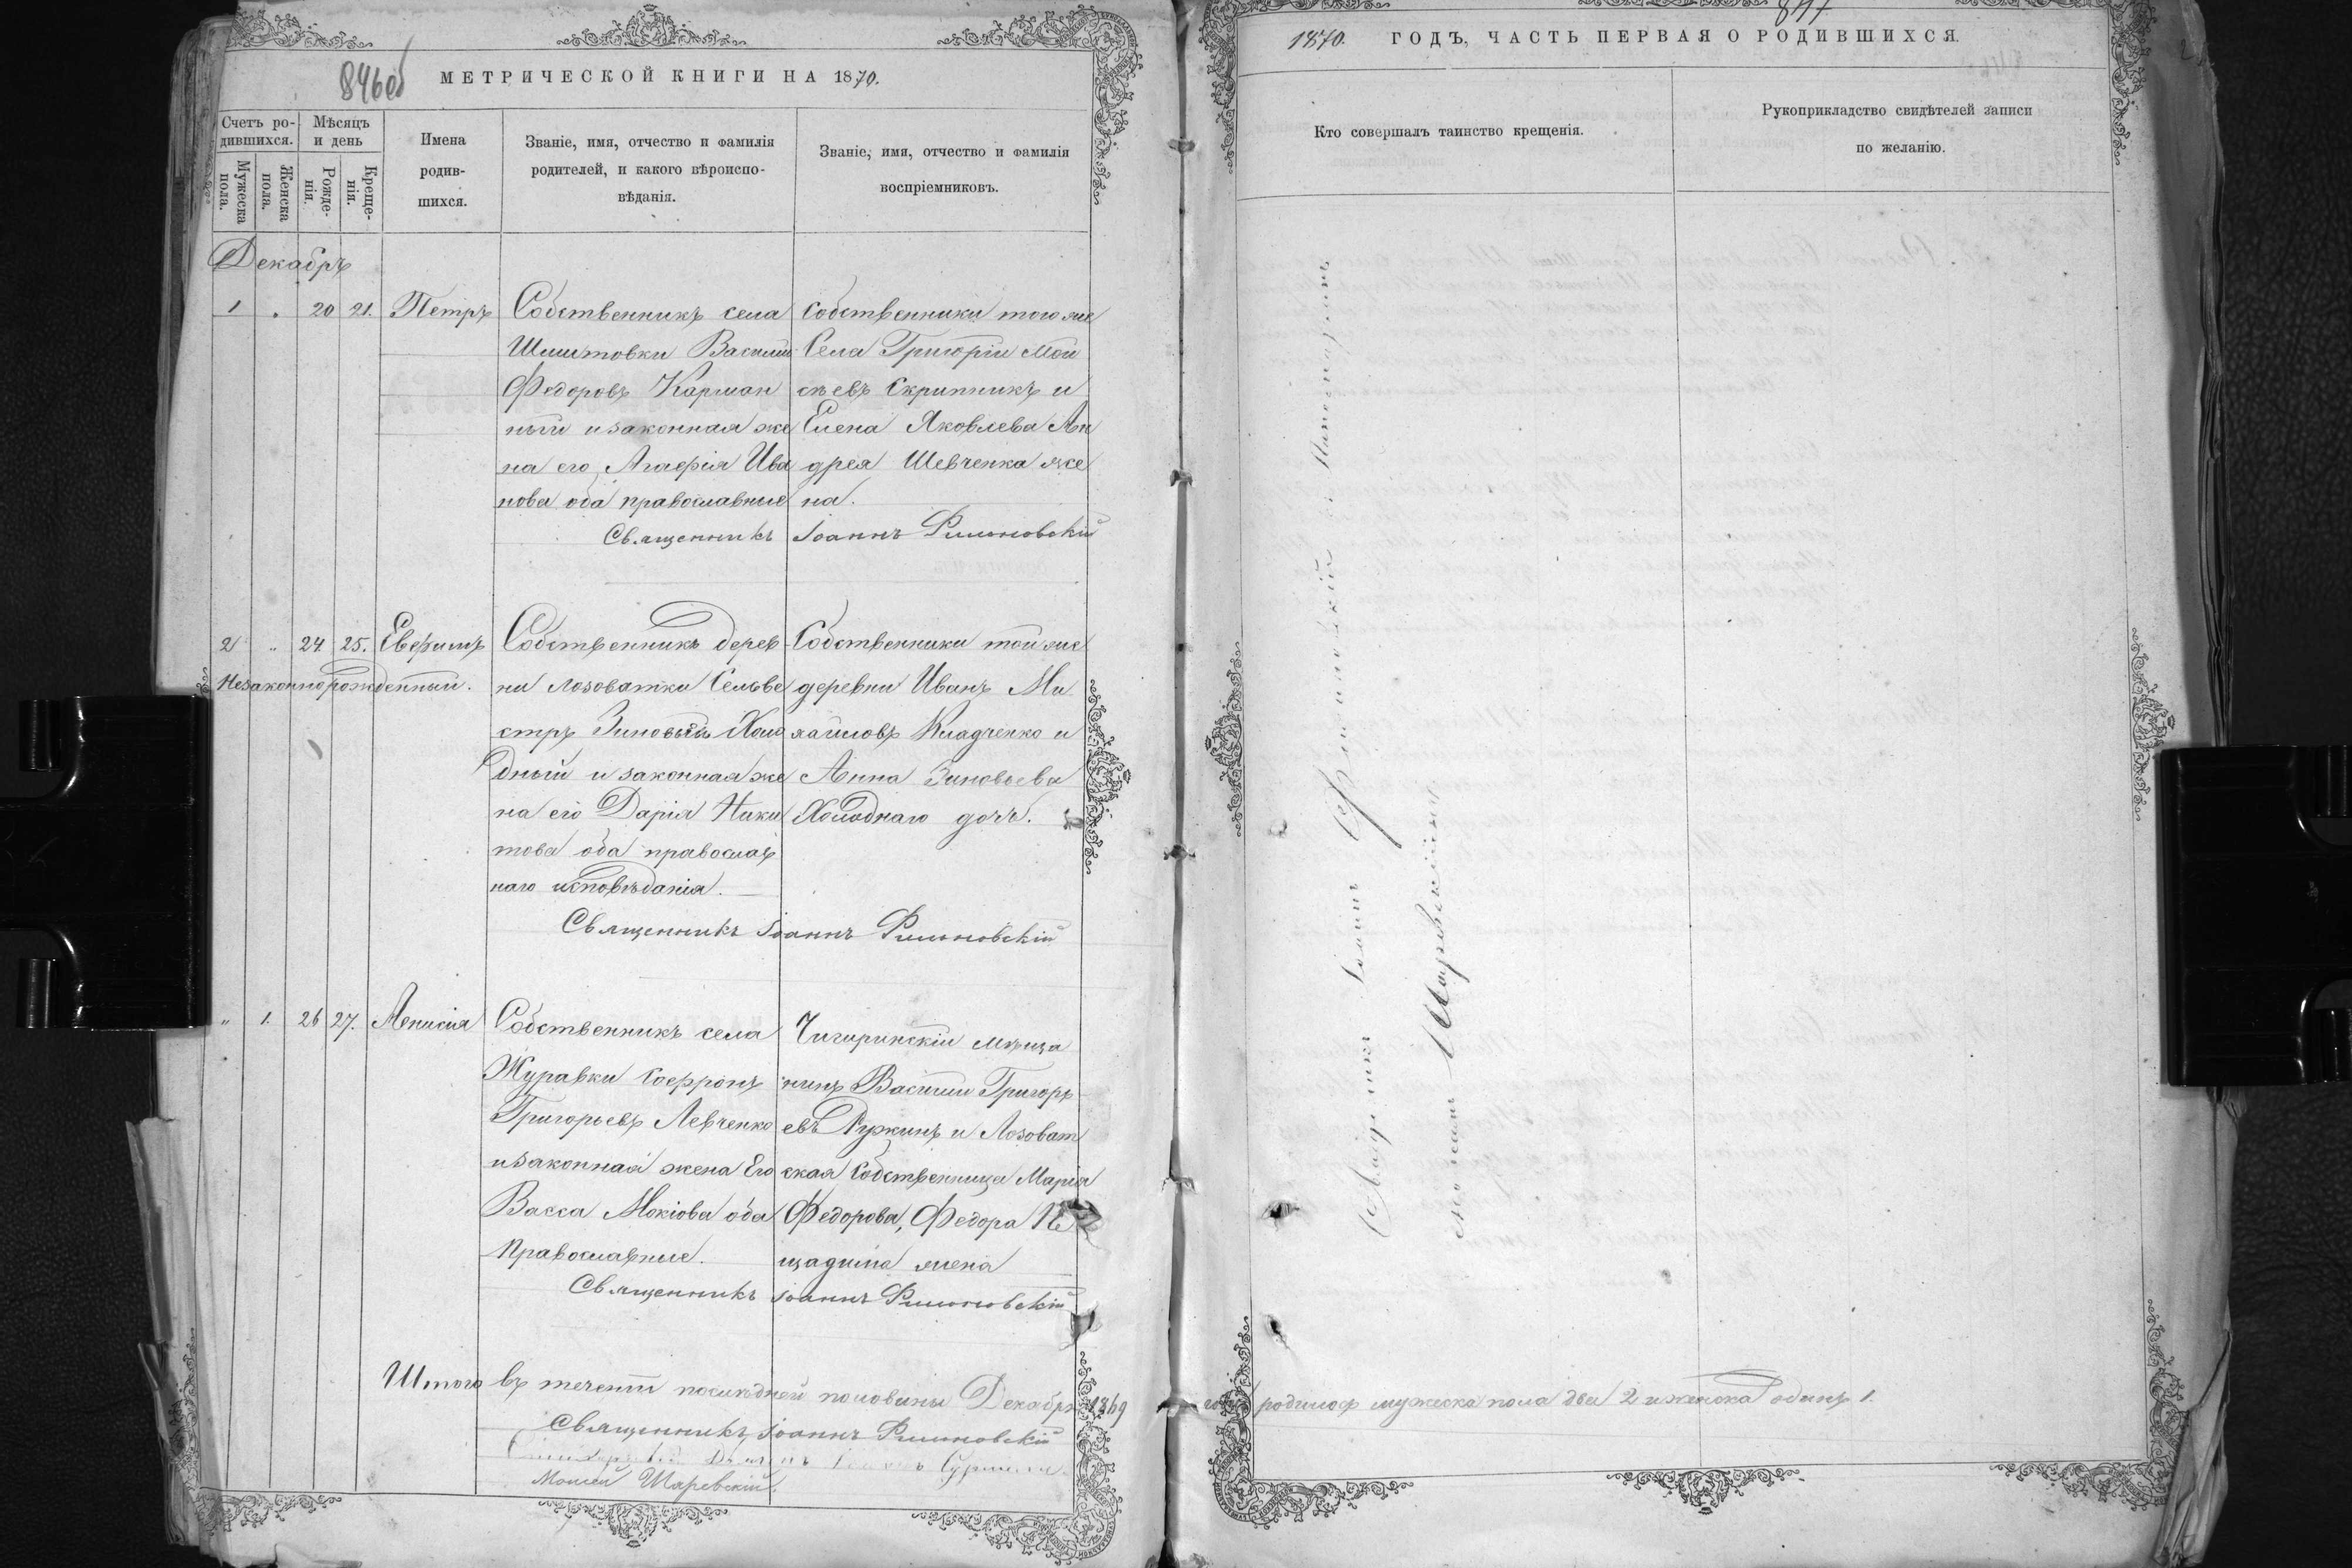 846об
МЕТРИЧЕСКОЙ КНИГИ НА 1870.
Счетъ ро-
дившихся.
Мѣсяцъ
и день
Мужеска
пола.
Женска
пола.
Рожде-
нія.
Креще-
нія.
Имена
родив-
шихся.
Званіе, имя, отчество и фамилія
родителей, и какого вѣроиспо-
вѣданія.
Званіе, имя, отчество и фамилія
воспріемниковъ.
Декабрь
1 " 20 21. Петръ
Собственникъ села
Василій
Федоровъ Карман
ный и законная же
на его Агафія Ива
нова оба православные
собственники того же
Села Григорій Мои
сѣевъ Скрипникъ и
Елена Яковлева Ан
дрея Шевченка же
на.
Священникъ Іоаннъ
2 " 24 25. Евфимъ
Незаконнорожденный.
Собственникъ дерев
ни Лозоватки Сельве
стръ Зиновьевъ Холо
дный и законная же
на его Дарія Ники
това оба православ
наго исповѣданія.
Собственники той же
деревни Иванъ Ми
хайловъ Кладченко и
Анна Зиновьева
Холоднаго дочь.
Священникъ Іоаннъ
" 1. 26 27.
Собственникъ села
Журавки Софронъ
Григорьевъ Левченко
и законная жена Его
Васса Мокіова оба
Православные.
Чигиринскій мѣща
нинъ Василій Григорь
евъ Ружинъ и Лозоват
ская Собственница Марія
Федорова, Федора Не
щадима жена
Священникъ Іоаннъ
Итого въ теченіи послѣдней половины Декабря 1869
Священникъ Іоаннъ
Моисей Шаревскій.
847
1870. ГОДЪ, ЧАСТЬ ПЕРВАЯ О РОДИВШИХСЯ.
Кто совершалъ таинство крещенія.
Рукоприкладство свидѣтелей записи
по желанію.
Іоаннъ
Шаревскимъ
года родилось мужеска пола два 2 и женска одинъ 1.